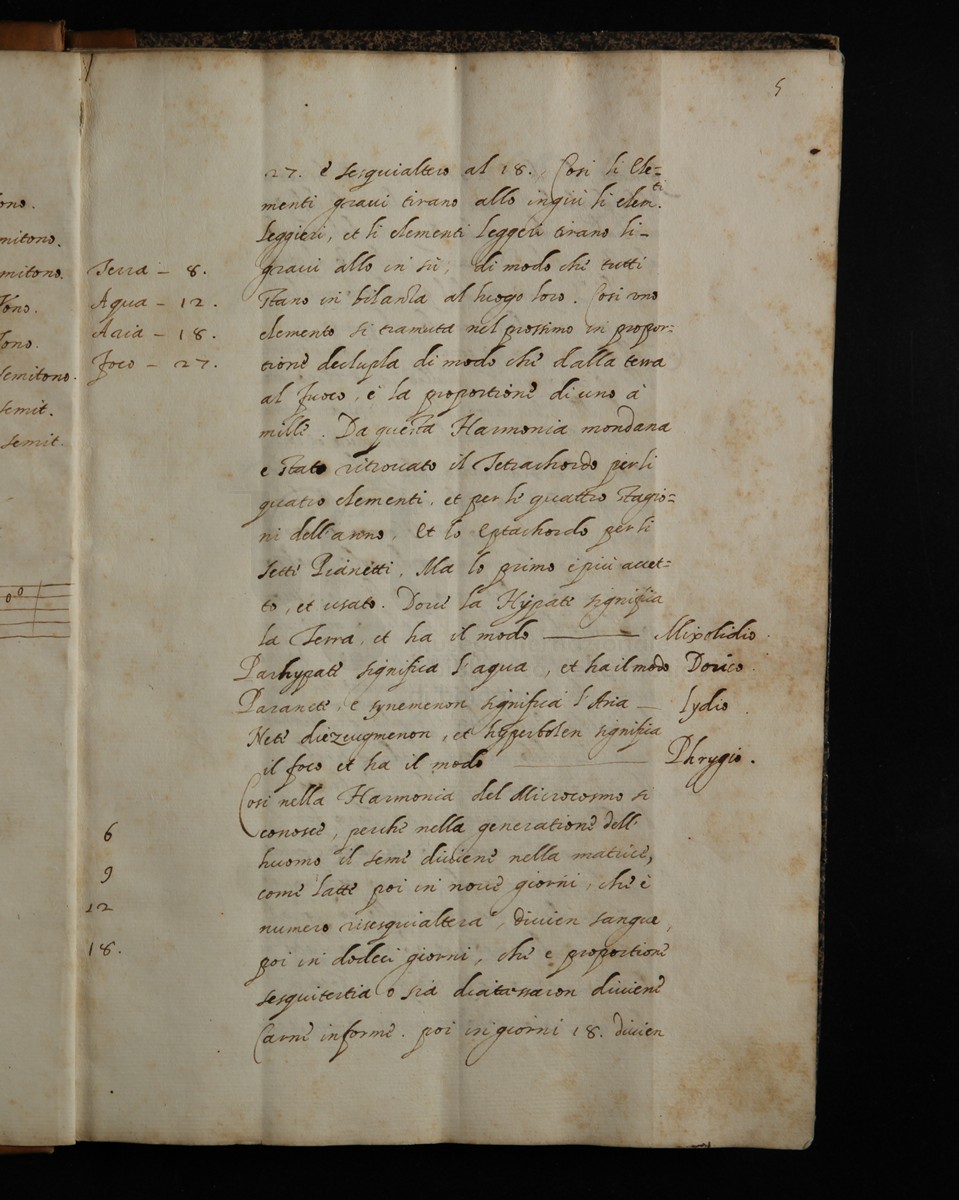 5
27. è sesquialtero al 18. Cosi li Ele-
menti graui tirano allo ingiù li elem.ti
leggieri, et li elementi leggeri tirano li-
graui allo in sù, di modo che tutti
stano in bilanza al luogo loro. Cosi uno
elemento si tramuta nel prossimo in propor:
tione decupla di modo che dalla terra
al fuoco, è la proportione di uno à
mille. Da questa Harmonia mondana
e stato ritrouato il Tetrachordo per li
quatro elementi, et per le quattro stagio=
ni dell'anno, Et lo Eptachordo per li
sette Pianetti, Ma lo primo è più accet-
to, et usato. Doue la Hypate significa
la Terra, et ha il modo — Mixolidio.
Parhypate significa l'aqua, et ha il modo Dorico.
Paranete, e synemenon significa l'Aria — Lydio
Nete diezeugmenon, et hyperbolen significa
il foco et ha il modo — Phrygio.
Cosi nella Harmonia del Microcosmo si
conosce, perche nella generatione dell'
huomo il seme diuiene nella matrice,
come latte poi in noue giorni, che è
numero sesquialtera, diuien sangue,
poi in dodeci giorni, che e proportione
sesquitertia o sia diatessaron diuiene
Carne informe. poi in giorni 18. diuien
Terra - 8.
Aqua - 12.
Aria - 18.
foco - 27.
6
9
12
18.
ono.
mitono.
mitono.
Tono.
Tono.
semitono.
semit.
semit.